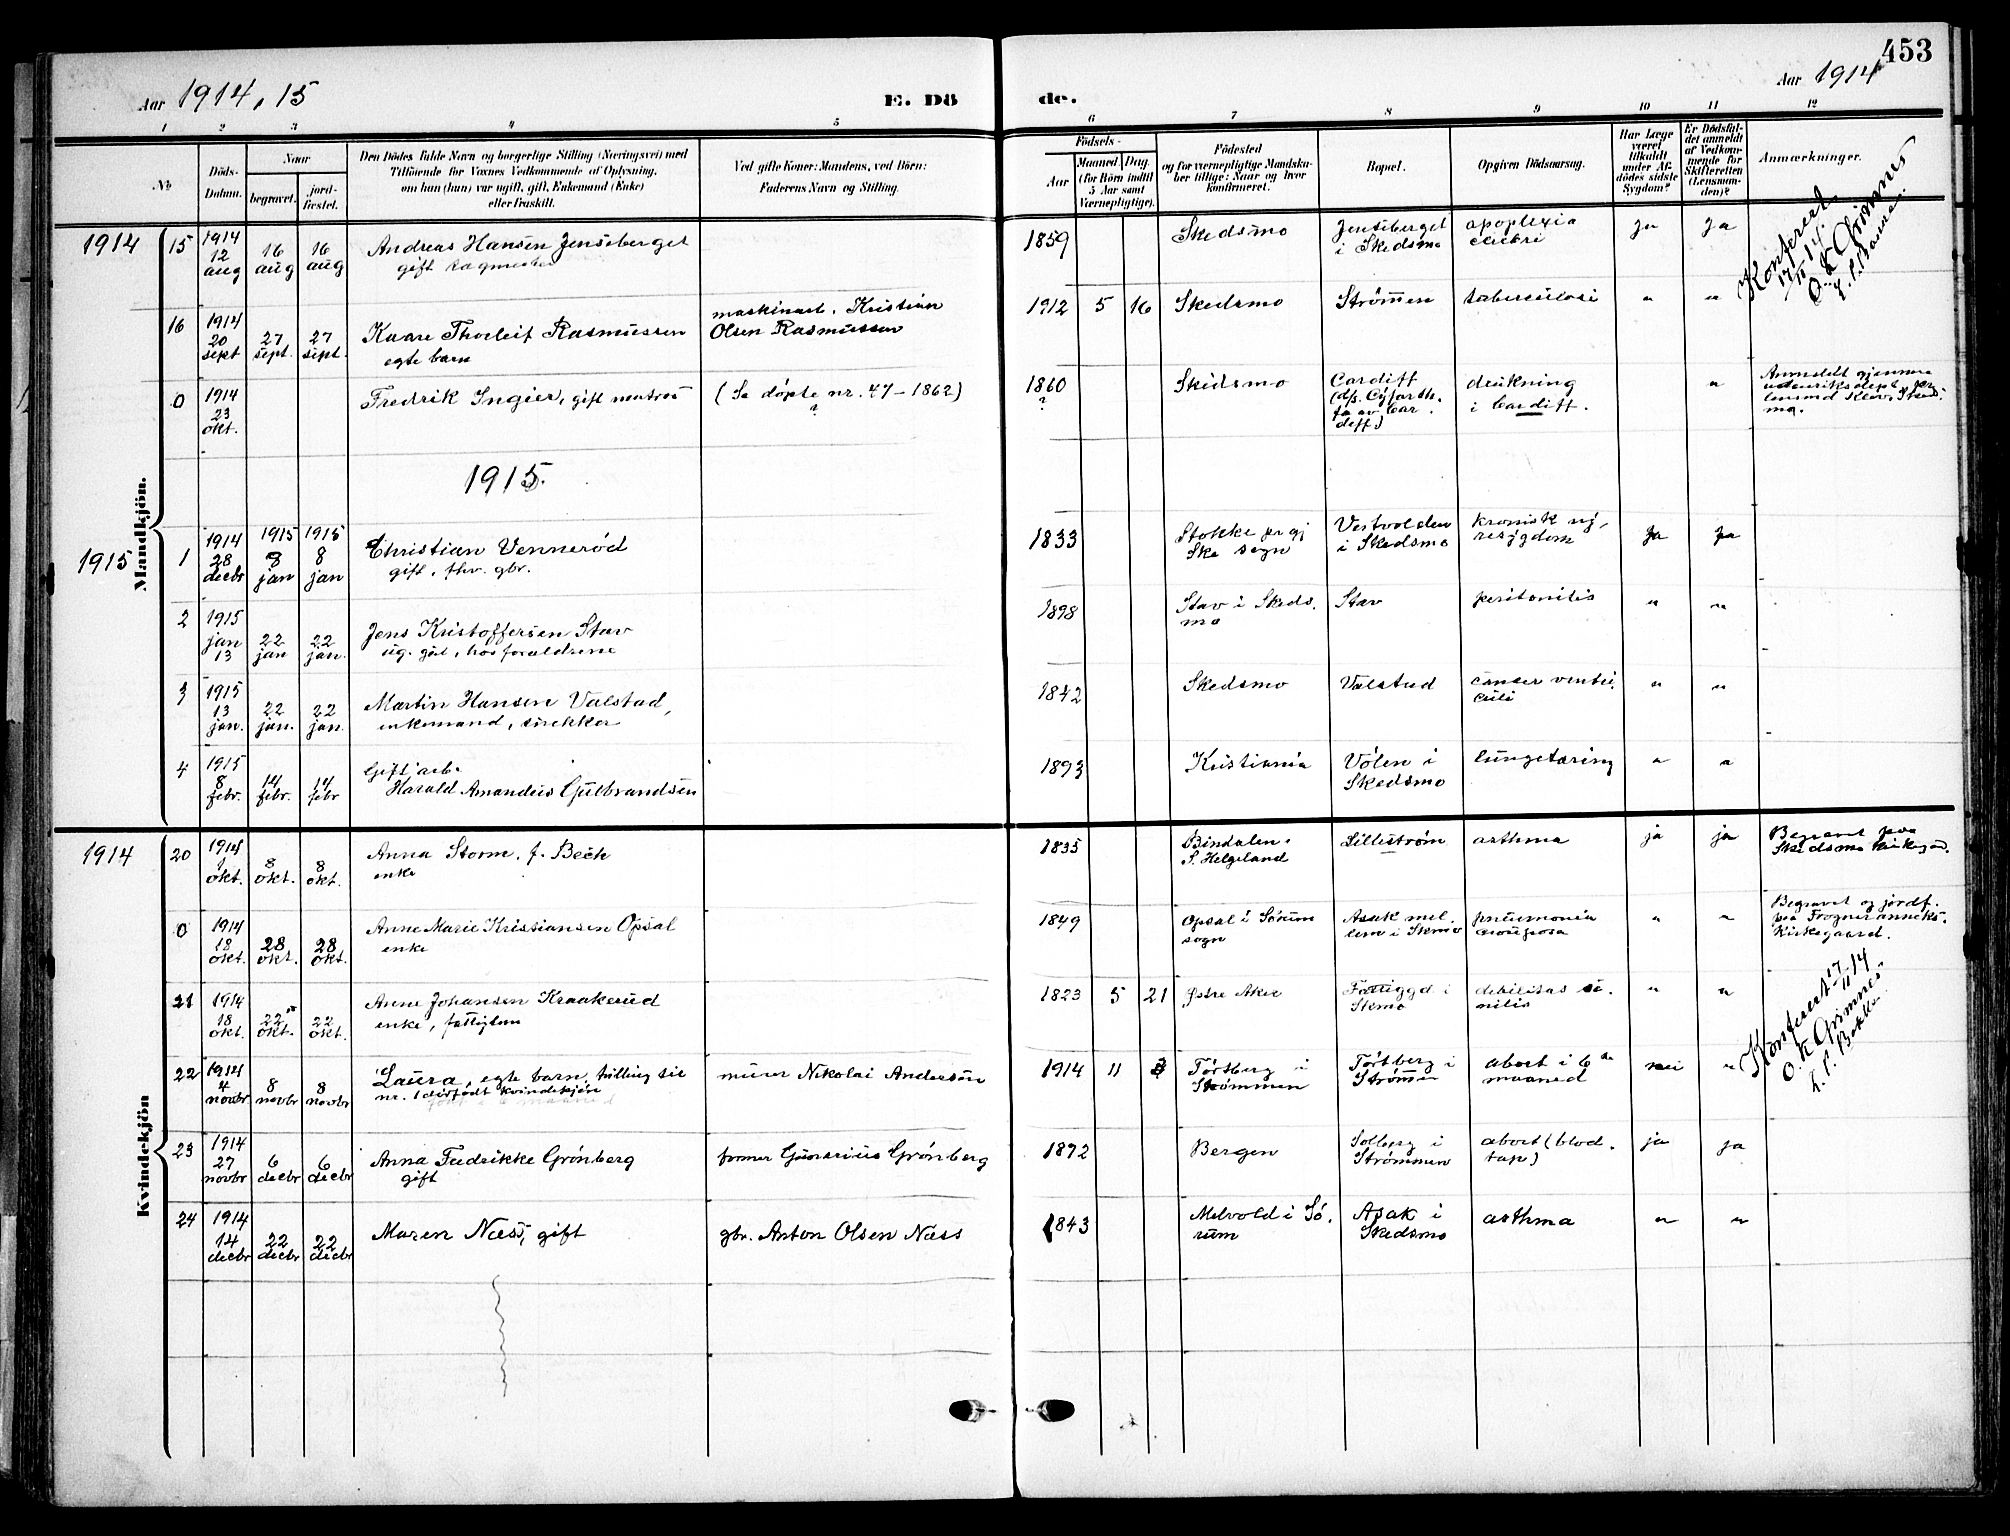 453
Aar 1914, 15
E. Dö
de.
Aar 1914
1 2 3 4 5 6 7 8 9 10 11 12
No
Döds-
Datum.
Naar
begravet.
jord-
fæstet.
Den Dödes fulde Navn og borgerlige Stilling (Næringsvei) med
Tilföiende for Voxnes Vedkommende af Oplysning,
om han (hun) var ugift, gift, Enkemand (Enke)
eller fraskilt.
Ved gifte Koner: Mandens, ved Börn:
Faderens Navn og Stilling.
Födsels-
Aar
Maaned. Dag.
(for Börn indtil
5 Aar samt
Værnepligtige).
Födested
og for værnepligtige Mandska-
ber tillige: Naar og hvor
konfirmeret.
Bopæl.
Opgiven Dödsaarsag.
Har Læge
været
tilkaldt
under Af-
dödes sidste
Sygdom?
Er Dödsfal-
det anmeldt
af Vedkom-
mende for
Skifteretten
(Lensman-
den)?
Anmærkninger.
Mandkjön.
1914
15
1914
12
aug
16
aug
16
aug
Andreas Hansen Jenseberget
gift
1859
Skedsmo
Jenseberget
i Skedsmo
apoplexia
cerebri
Ja
Ja
Konferert
O. K. Grimnes
16
1914
20
sept
27
sept.
27
sept.
Kaare Thorleif Rasmussen
egte barn
maskinarb. Kristian
Olsen Rasmussen
1912 5 16
Skedsmo
Strømmen
tuberculosi
"
"
0
1914
23
okt.
Fredrik Ingier, gift matros
(Se døpte nr. 47 - 1862)
?
1860
?
Skedsmo
Cardiff
(d/s. Cyfarth.
fa av Car.
diff)
drukning
i Cardiff.
"
Anmeldt gjennem
utenriksdept.
1915.
1915
1
1914
28
decbr
1915
8
jan
1915
8
jan
Christian Vennerød
gift, fhv. gbr.
1833
Stokke
sogn
Vestvolden
i Skedsmo
kronisk ny,
resygdom
Ja
Ja
2
1915
jan
13
22
jan
22
jan.
Jens Kristoffersen Stav
ug. hos forældrene
1898
Stav i Skeds.
mo
Stav
peritonitis
"
"
3
1915
13
jan.
22
jan.
22
jan.
Martin Hansen Valstad,
enkemand, snekker
1842
Skedsmo
Valstad
cancer ventri.
culi
"
"
4
1915
8
febr.
14
febr.
14
febr
Gift arb.
Harald Amandus Gulbrandsen
1893
Kristiania
Vølen i
Skedsmo
lungetæring
"
"
Kvindekjön
1914
20
1914
1
okt.
8
okt.
8
okt.
Anna Storm, f. Beck
enke
1835
Bindalen,
S. Helgeland
Lillestrøm
asthma
ja
ja
Begravet paa
Skedsmo kirkegd.
0
1914
18
okt.
28
okt.
28
okt.
Anne Marie Kristiansen Opsal
enke
1849
Opsal i Sørum
sogn
Asak mel.
lem i Skmo
pneumonia
crouposa
"
"
Begravet og jordf.
paa Frogner anneks.
Kirkegaard.
21
1914
18
okt.
22
okt.
22
okt.
Anne Johansen Kraakerud
enke, fattiglem
1823 5 21
Østre Aker
Fattiggd i
Skmo
debilitas se.
nilis
"
"
Konferert 17/11-14
O. K. Grimnes
22
1914
4
novbr
8
novbr
8
novbr
Laura, egte barn, tvilling til
nr. 1 dødfødt kvindekjøn
murer Nikolai Andersen
1914 11
Tørtberg i
Strømmen
Tørtberg i
Strømmen
abort i 6de
maaned
nei
"
23
1914
27
novbr
6
decbr
6
decbr
Anna Fredrikke Grønberg
gift
former Gunarius Grønberg
1872
Bergen
Solberg i
Strømmen
abort (blod.
tap)
ja
ja
24
1914
14
decbr
22
decbr
22
decbr
Maren Næss, gift
gbr. Anton Olsen Næss
1843
Melvold i Sø.
rum
Asak i
Skedsmo
asthma
"
"